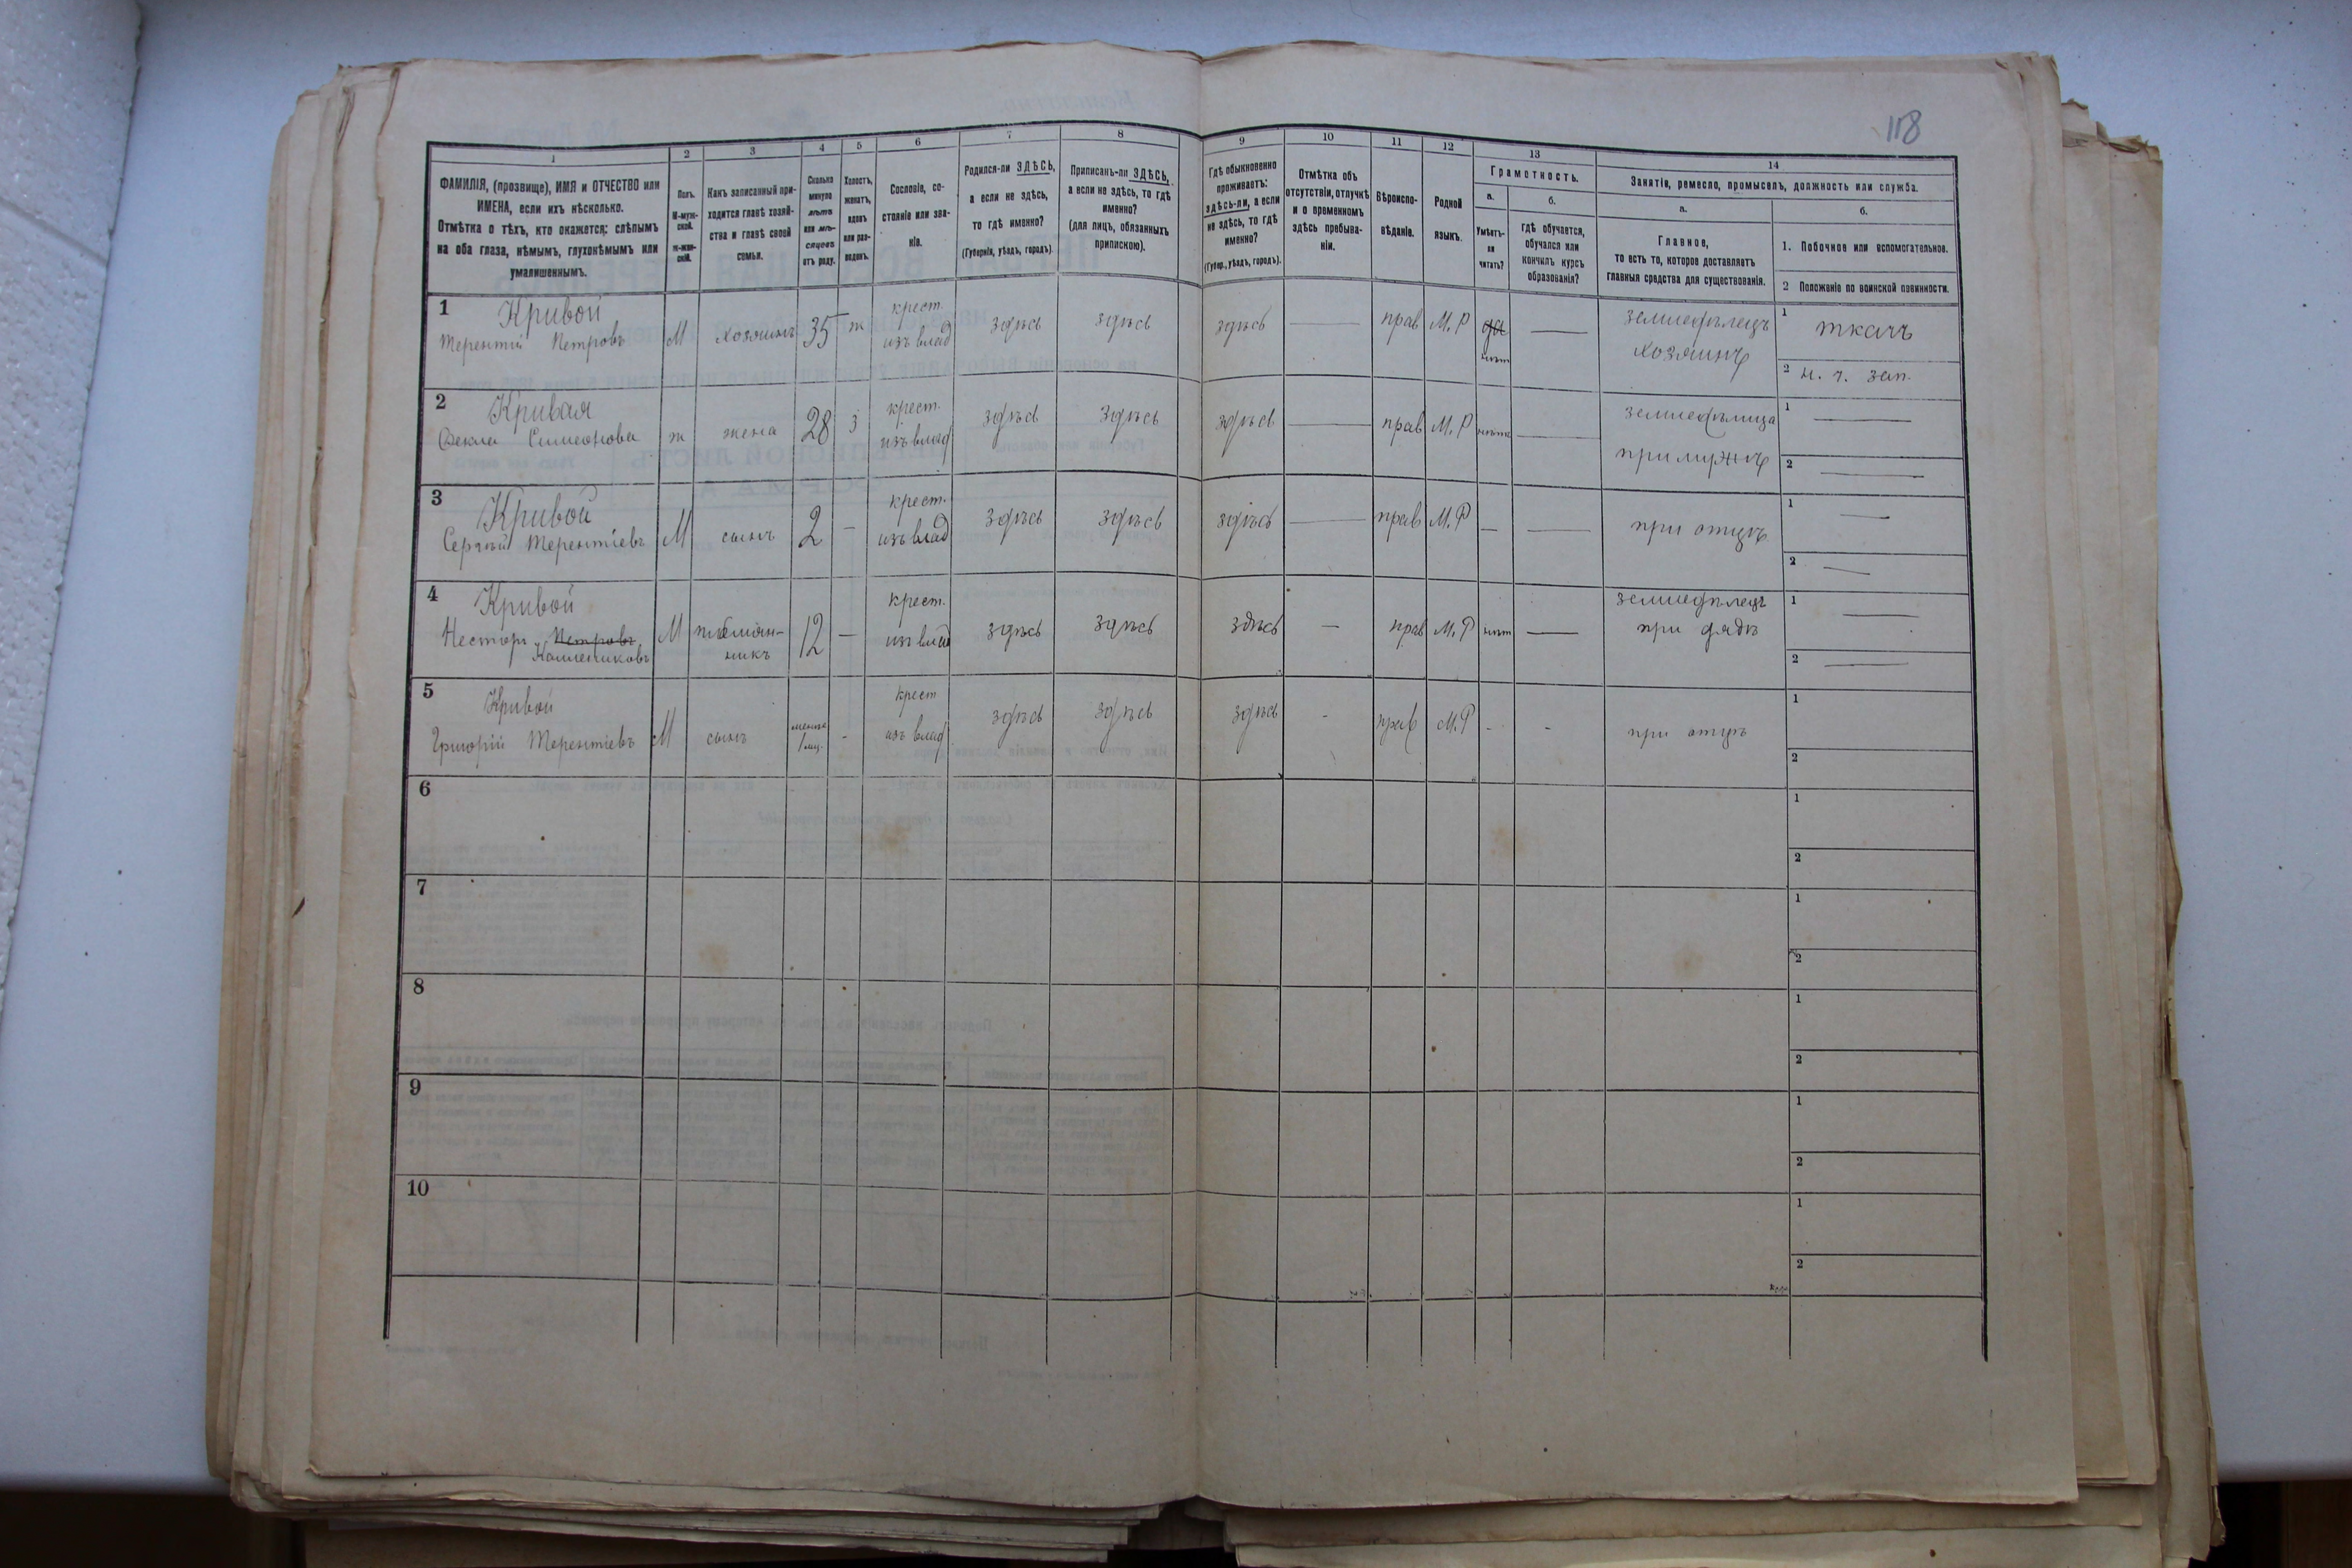 118
1
2
3
4
5
6
7
8
9
10
11
12
13
14
ФАМИЛІЯ, (прозвище), ИМЯ и ОТЧЕСТВО или
ИМЕНА, если ихъ нѣсколько.
Отмѣтка о тѣхъ, кто окажется: слѣпымъ
на оба глаза, нѣмымъ, глухонѣмымъ или
умалишеннымъ.
Полъ.
М-муж-
ской.
ж-жен-
скій.
Какъ записанный при-
ходится главѣ хозяй-
ства и главѣ своей
семьи.
Сколько
минуло
лѣтъ
или мѣ-
сяцевъ
отъ роду.
Холостъ,
женатъ,
вдовъ
или раз-
веденъ.
Сословіе, со-
стояніе или зва-
ніе.
Родился-ли ЗДѢСЬ,
а если не здѣсь,
то гдѣ именно?
(Губернія, уѣздъ, городъ).
Приписанъ-ли ЗДѢСЬ,
а если не здѣсь, то гдѣ
именно?
(для лицъ, обязанныхъ
припискою).
Гдѣ обыкновенно
проживаетъ:
здѣсь-ли, а если
не здѣсь, то гдѣ
именно?
(Губер., уѣздъ, городъ).
Отмѣтка объ
отсутствіи, отлучкѣ
и о временномъ
здѣсь пребыва-
ніи.
Вѣроиспо-
вѣданіе.
Родной
языкъ.
Грамотность.
а.
Умѣетъ-
ли
читать?
б.
гдѣ обучается,
обучался или
кончилъ курсъ
образованія?
Занятіе, ремесло, промыселъ, должность или служба.
а.
Главное,
то есть то, которое доставляетъ
главныя средства для существованія.
б.
1. Побочное или вспомогательное.
2 Положеніе по воинской повинности.
1 Кривой
Терентій Петровъ
М
хозяинъ
35
ж
крест.
изъ влад
здѣсь
здѣсь
здѣсь
прав
М.Р
да
нѣт
земледѣлецъ
хозяинъ
1 ткачъ
2 н. ч. зап.
2 Кривая
Фекла Симеонова
ж
жена
28
з
крест.
изъ влад
здѣсь
здѣсь
здѣсь
прав
М.Р
нѣтъ
земледѣлица
при мужѣ
1
2
3 Кривой
Сергѣй Терентіевъ
М
сынъ
2
крест.
изъ влад
здѣсь
здѣсь
здѣсь
прав
М.Р
при отцѣ
1
2
4 Кривой
Несторъ Петровъ
Каллениковъ
М
племян-
никъ
12
крест.
изъ влад
здѣсь
здѣсь
здѣсь
прав
М.Р
нѣт
земледѣлецъ
при дядѣ
1
2
5 Кривой
Григорій Терентіевъ
М
сынъ
менѣе
1 мц.
крест
изъ влад
здѣсь
здѣсь
здѣсь
прав
М.Р
при отцѣ
1
2
6
1
2
7
1
2
8
1
2
9
1
2
10
1
2